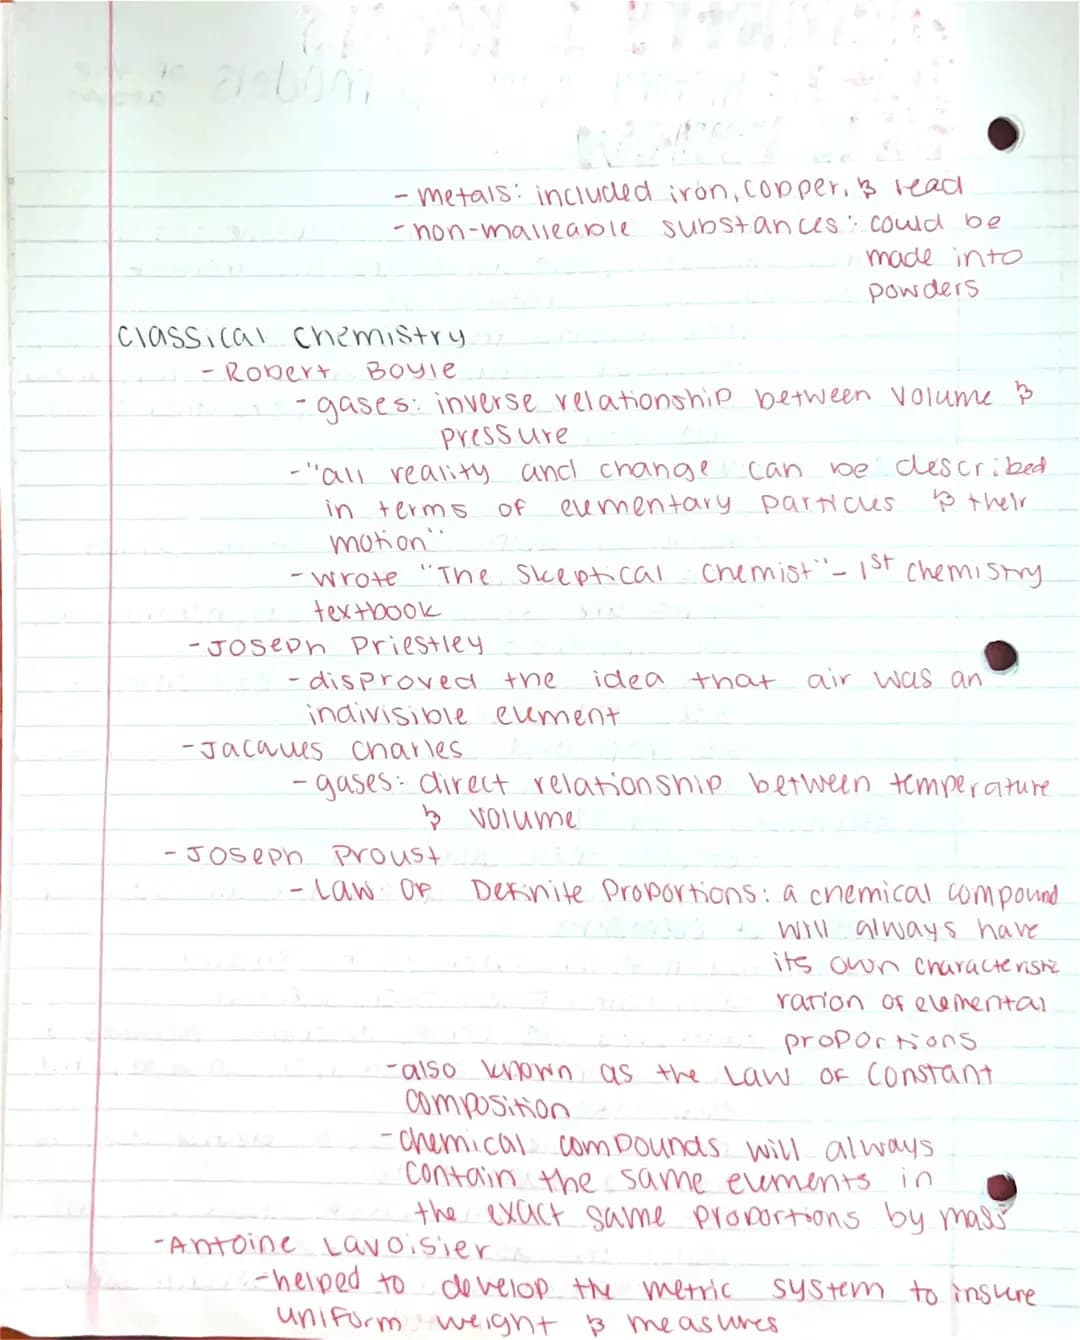 - metals: included iron, copper, & lead
- non-malleable substances: could be
made into
powders
Classical Chemistry
- Robert Boyle
- gases: inverse relationship between volume &
pressure
- "all reality and change can be described
in terms of elementary particles & their
motion"
- wrote "The Skeptical Chemist" - 1st chemistry
textbook
- Joseph Priestley
- disproved the idea that air was an
indivisible element
- Jacques Charles
- gases: direct relationship between temperature
& volume
- Joseph Proust
- Law Of Definite Proportions: a chemical compound
will always have
its own characteristic
ration of elemental
proportions
- also known as the Law of Constant
Composition
- Chemical compounds will always
contain the same elements in
the exact same proportions by mass
- Antoine Lavoisier
- helped to develop the metric system to insure
uniform weight & measures